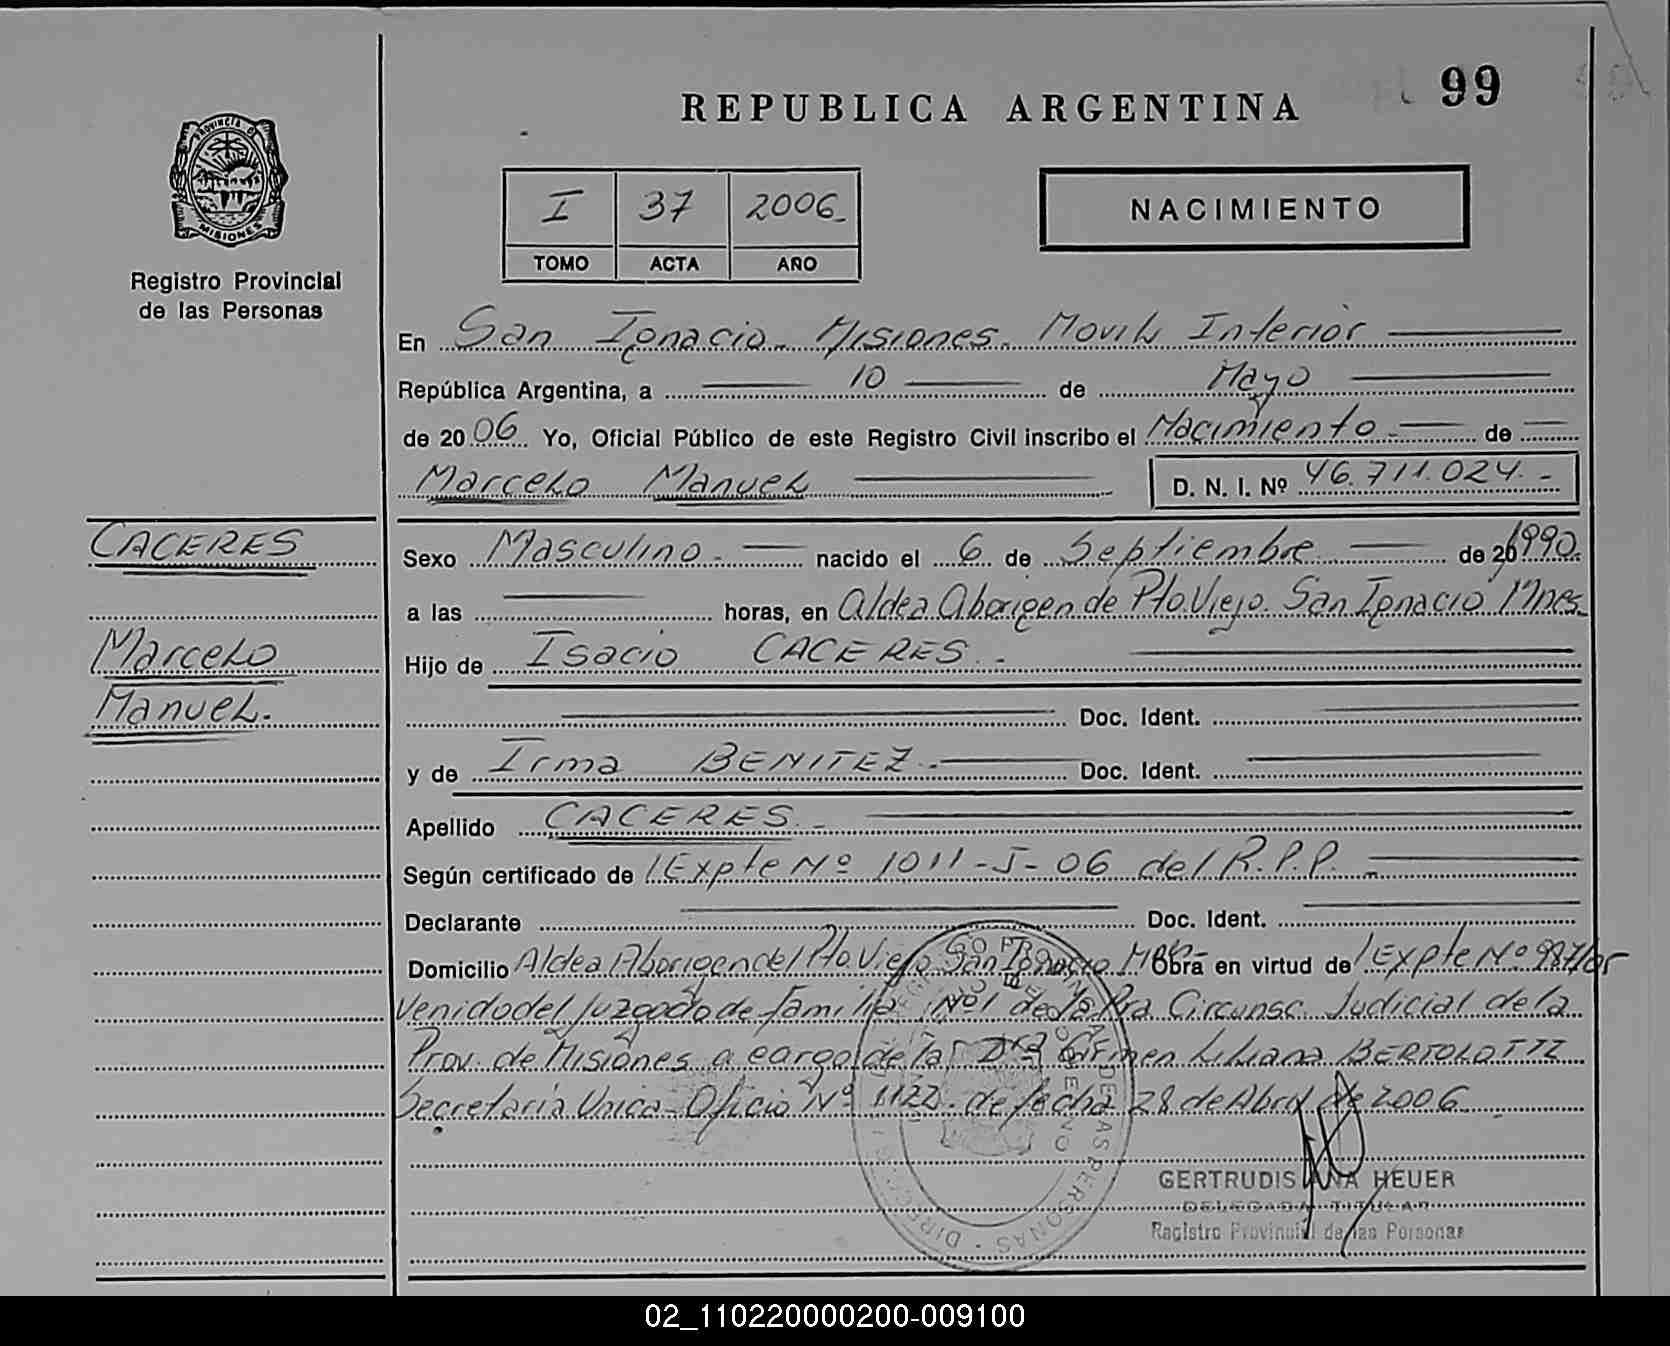 99
REPUBLICA ARGENTINA
PROVINCIA DE
MISIONES
Registro Provincial
de las Personas
I 37 2006
TOMO ACTA AÑO
NACIMIENTO
En San Ignacio Misiones. Movil Interior
República Argentina, a 10 de Mayo
de 2006 Yo, Oficial Público de este Registro Civil inscribo el Nacimiento de
Marcelo Manuel D. N. I. Nº 46.711.024.-
CACERES
Marcelo
Manuel.
Sexo Masculino.- nacido el 6 de Septiembre de 1990.
a las horas, en Aldea Aborigen de Pto. Viejo. San Ignacio Mnes.
Hijo de Isacio CACERES.-
Doc. Ident.
y de Irma BENITEZ.- Doc. Ident.
Apellido CACERES.-
Según certificado de Expte Nº 1011-J-06 del R.P.P.-
Declarante Doc. Ident.
Domicilio Aldea Aborigen del Pto. Viejo San Ignacio Obra en virtud de Expte Nº 987/05
Venido del Juzgado de familia Nº1 de la Pra Circunsc. Judicial de la
Prov. de Misiones a cargo de la Dra Carmen Liliana
Secretaría Unica- Oficio Nº 1122.- de fecha 28 de Abril de 2006.-
GERTRUDIS ANA HEUER
DELEGADA TITULAR
Registro Provincial de las Personas
02_110220000200-009100